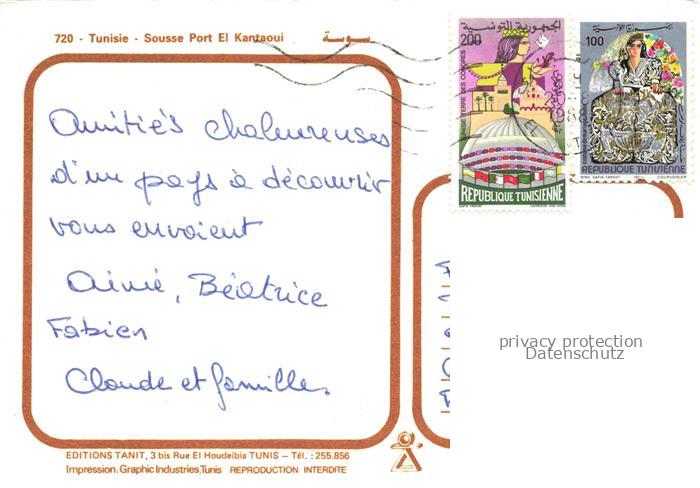 720 - Tunisie - Sousse Port El Kantaoui سوسة
Amitiés chaleureuses
d'un pays à découvrir
vous envoient
Aimé, Béatrice
Fabien
Claude et famille.
EDITIONS TANIT, 3 bis Rue El Houdeibia TUNIS - Tél. : 255.856
Impression. Graphic Industries, Tunis REPRODUCTION INTERDITE
الجمهورية التونسية
200
TUNISIE TERRE DES CONGRES
REPUBLIQUE TUNISIENNE
SAFIA FARHAT
100
REPUBLIQUE TUNISIENNE
MME SAFIA FARHAT
COURVOISIER
privacy protection
Datenschutz